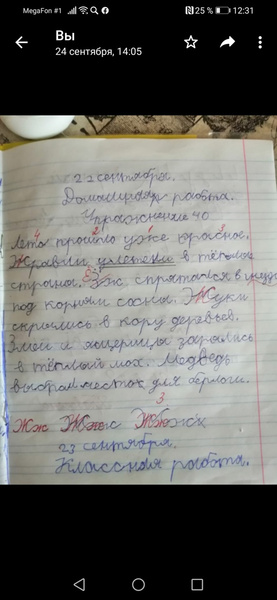 MegaFon #1 25 % 12:31
Вы
24 сентября, 14:05
22 сентября.
Домашняя работа.
Упражнение 40
Лето прошло уже красное.
улетели в тёплые
страны. Ёж спрятался в
под корнями сосны. Жуки
скрылись в кору деревьев.
Змеи и ящерицы зарылись
в тёплый мох. Медведь
для берлоги.
3
Жж
23 сентября.
Классная работа.